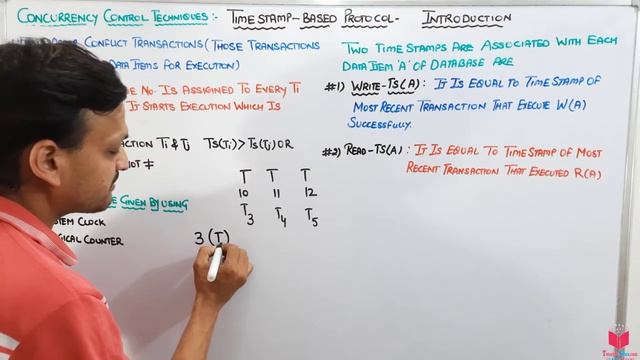 CONCURRENCY CONTROL TECHNIQUES:- TIME STAMP-BASED PROTOCOL- INTRODUCTION
CONFLICT TRANSACTIONS (THOSE TRANSACTIONS
DATA ITEMS FOR EXECUTION)
NO. IS ASSIGNED TO EVERY Ti
IT STARTS EXECUTION WHICH IS
Ti & Tj TS(Ti) > TS(Tj) OR
NOT ≠
GIVEN BY USING
CLOCK
COUNTER
T T T
10 11 12
T3 T4 T5
3 (T)
TWO TIME STAMPS ARE ASSOCIATED WITH EACH
DATA ITEM 'A' OF DATABASE ARE
#1) WRITE-TS(A): IT IS EQUAL TO TIME STAMP OF
MOST RECENT TRANSACTION THAT EXECUTE W(A)
SUCCESSFULLY.
#2) READ-TS(A): IT IS EQUAL TO TIME STAMP OF MOST
RECENT TRANSACTION THAT EXECUTED R(A)